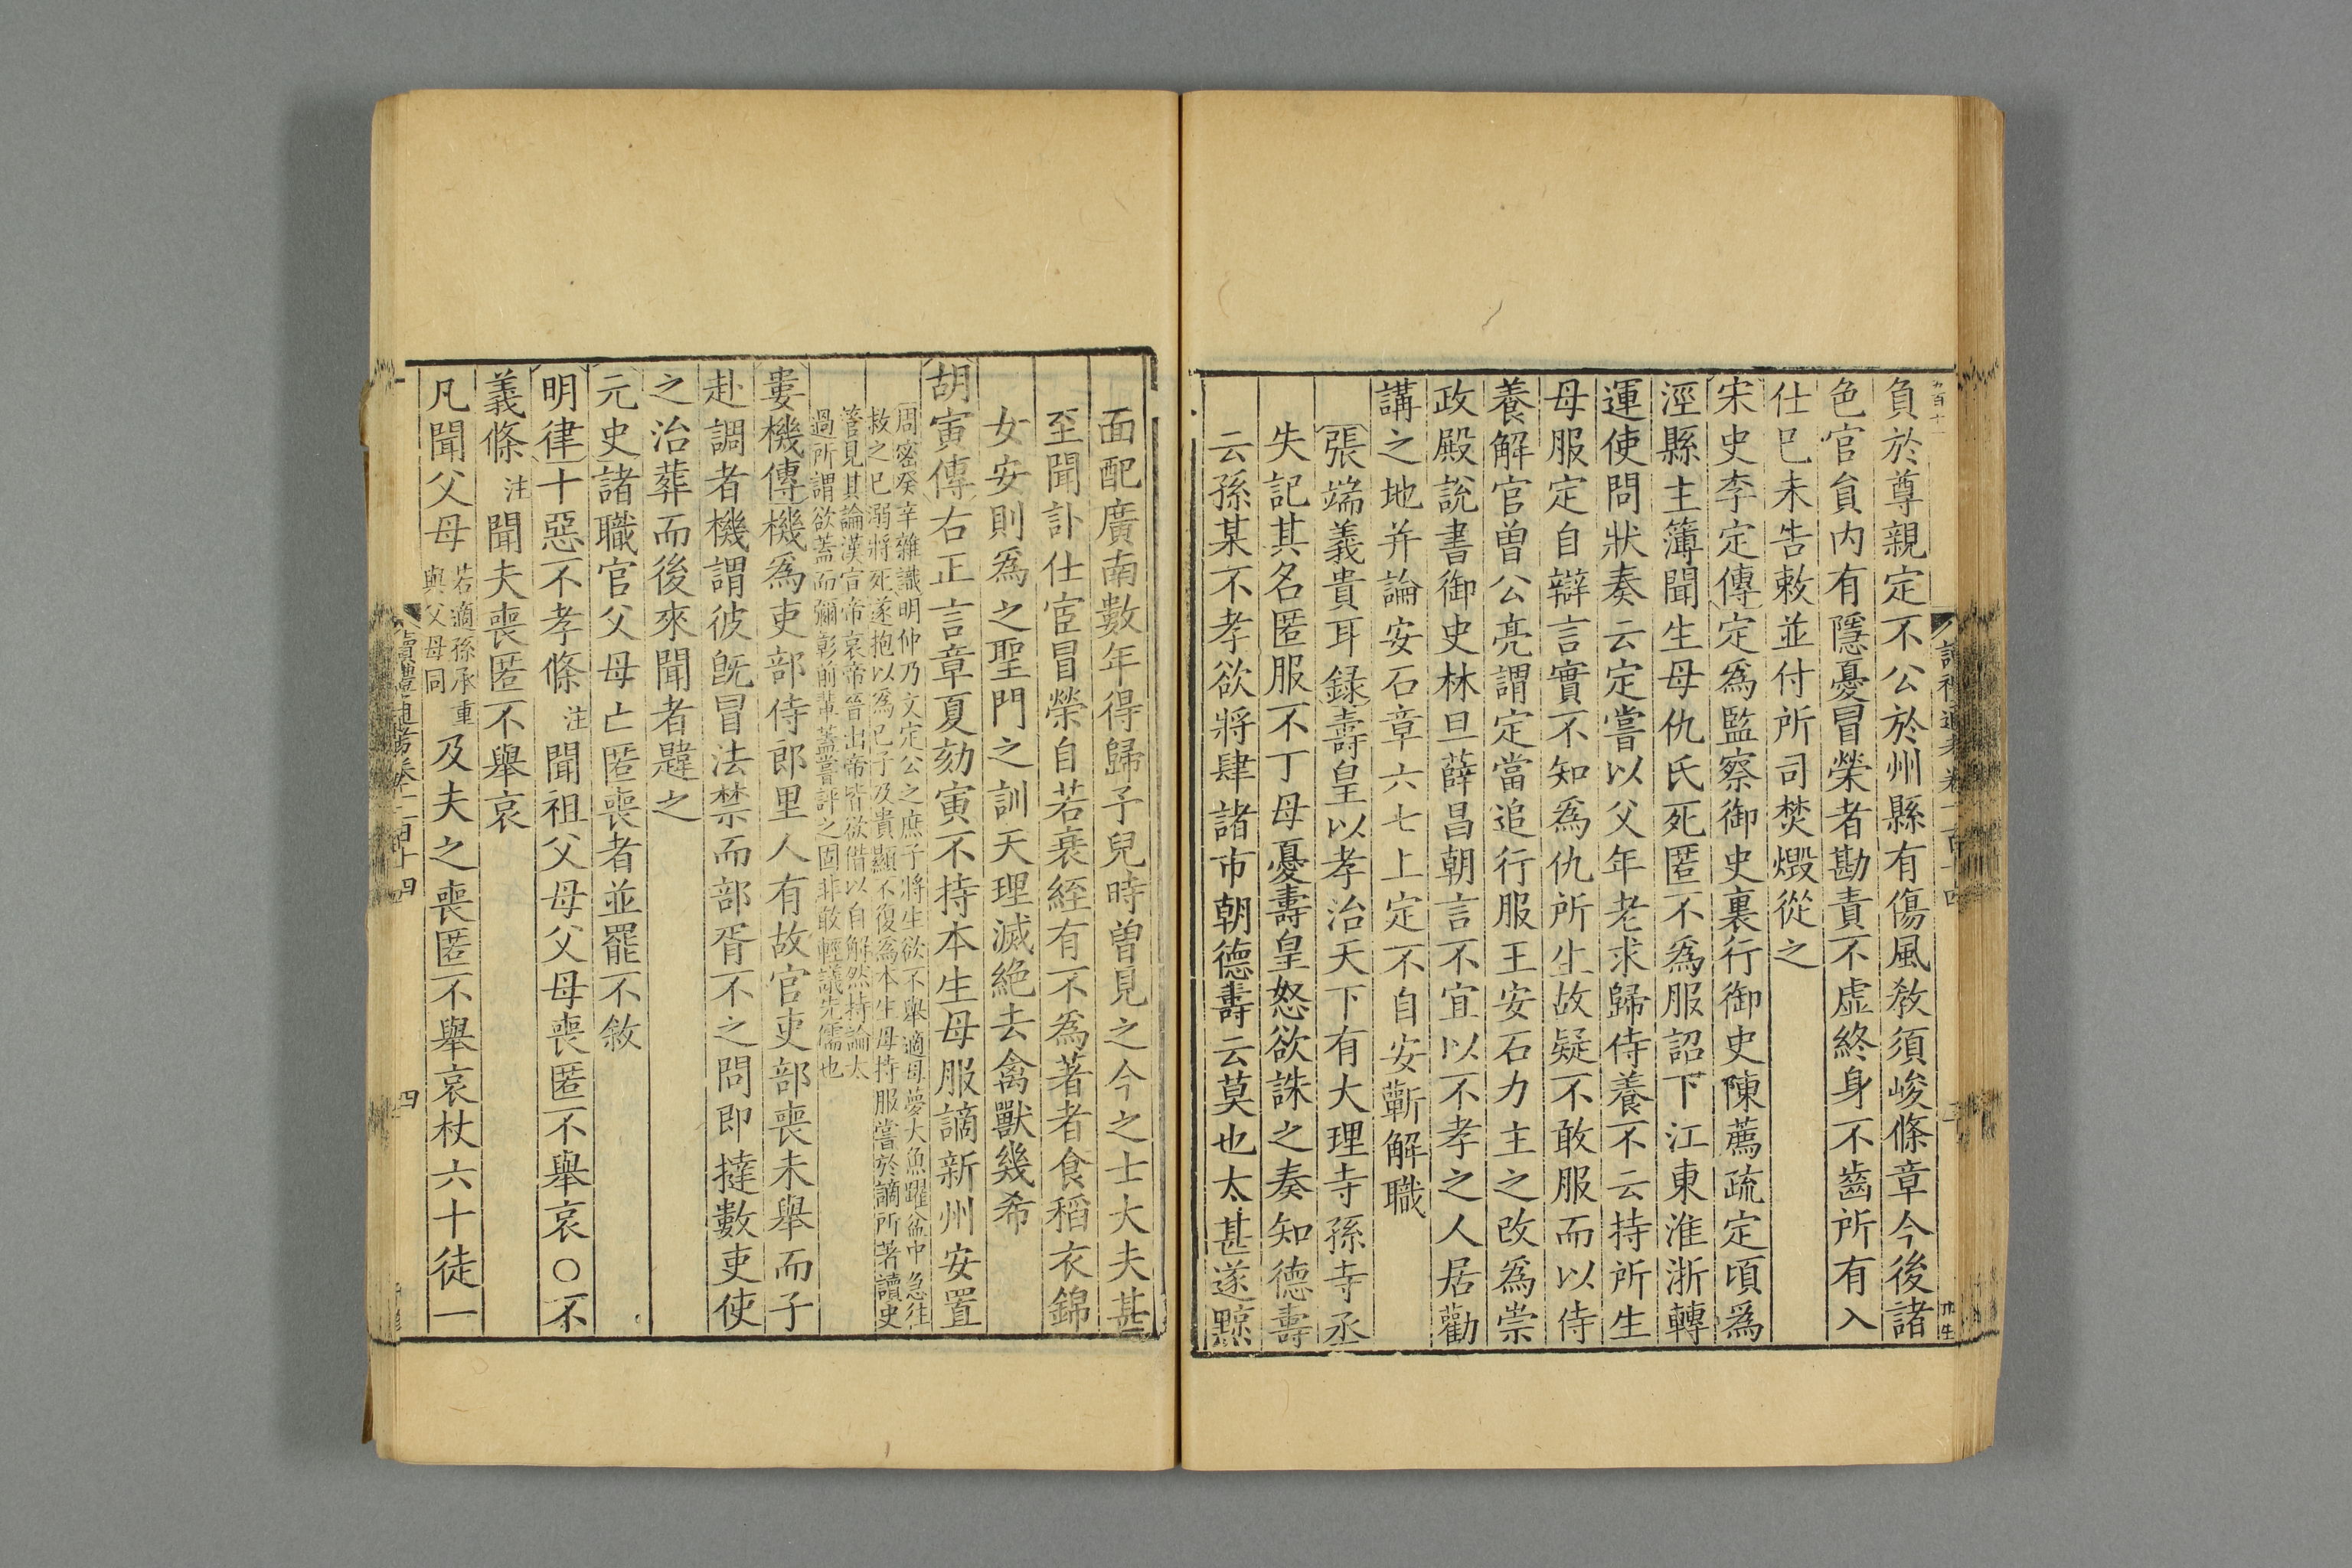 負於尊親定不公於州縣有傷風敎須峻條章今後諸
色官員内有隱憂冒榮者勘責不虛終身不齒所有入
仕巳未告敕並付所司焚燬從之
宋史李定傳定爲監察御史裏行御史陳薦疏定頃爲
涇縣主簿聞生母仇氏死匿不爲服詔下江東淮浙轉
運使問狀奏云定嘗以父年老求歸侍養不云持所生
母服定自辯言實不知爲仇所生故疑不敢服而以侍
養解官曾公亮謂定當追行服王安石力主之改爲崇
政殿說書御史林旦薛昌朝言不宜以不孝之人居勸
講之地并論安石章六七上定不自安蘄解職
張端義貴耳録壽皇以孝治天下有大理寺孫寺丞
失記其名匿服不丁母憂壽皇怒欲誅之奏知德壽
云孫某不孝欲將肆諸市朝德壽云莫也太甚遂黥
面配廣南數年得歸予兒時曾見之今之士大夫甚
至聞訃仕宦冒榮自若衰絰有不爲著者食稻衣錦
女安則爲之聖門之訓天理滅絶去禽獸幾希
胡寅傳右正言章夏劾寅不持本生母服謫新州安置
周密癸辛雜識明仲乃文定公之庶子將生欲不舉適母夢大魚躍盆中急往
救之巳溺將死遂抱以爲己子及貴顯不復爲本生母持服嘗於謫所著讀史
管見其論漢宣帝哀帝晉出帝皆欲借以自解然持論太
過所謂欲蓋而彌彰前輩蓋嘗評之固非敢輕議先儒也
婁機傳機爲吏部侍郎里人有故官吏部喪未舉而子
赴調者機謂彼旣冒法禁而部胥不之問即撻數吏使
之治葬而後來聞者韙之
元史諸職官父母亡匿喪者並罷不敘
明律十惡不孝條注聞祖父母父母喪匿不舉哀〇不
義條注聞夫喪匿不舉哀
凡聞父母若適孫承重與父母同及夫之喪匿不舉哀杖六十徒一
讀禮通考卷一百十四
四